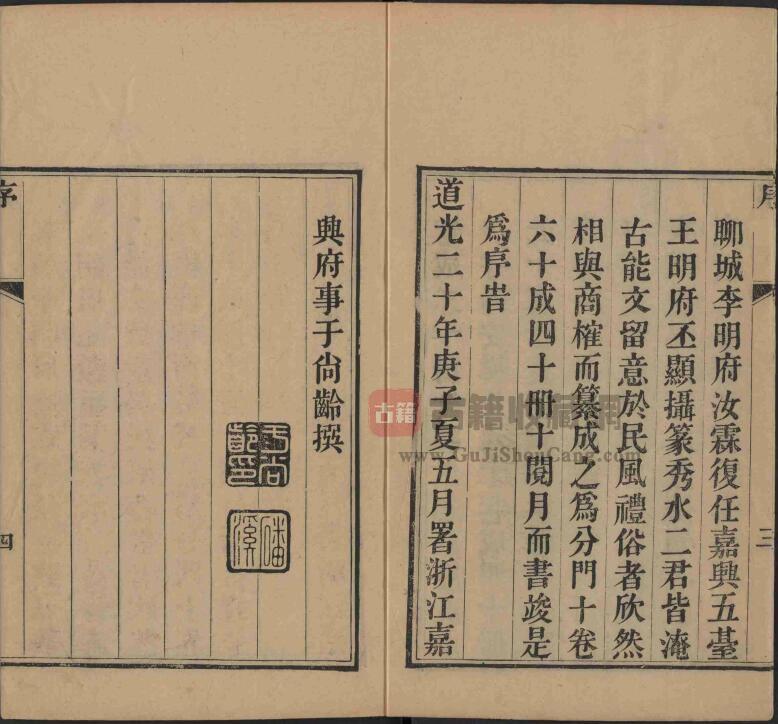 序
三
聊城李明府汝霖復任嘉興五臺
王明府丕顯攝篆秀水二君皆淹
古能文留意於民風禮俗者欣然
相與商榷而纂成之爲分門十卷
六十成四十冊十閱月而書竣是
爲序旹
道光二十年庚子夏五月署浙江嘉
興府事于尙齡撰
于尙齡印
磻溪
序
四
古籍
古籍收藏網
www.GuJiShouCang.com